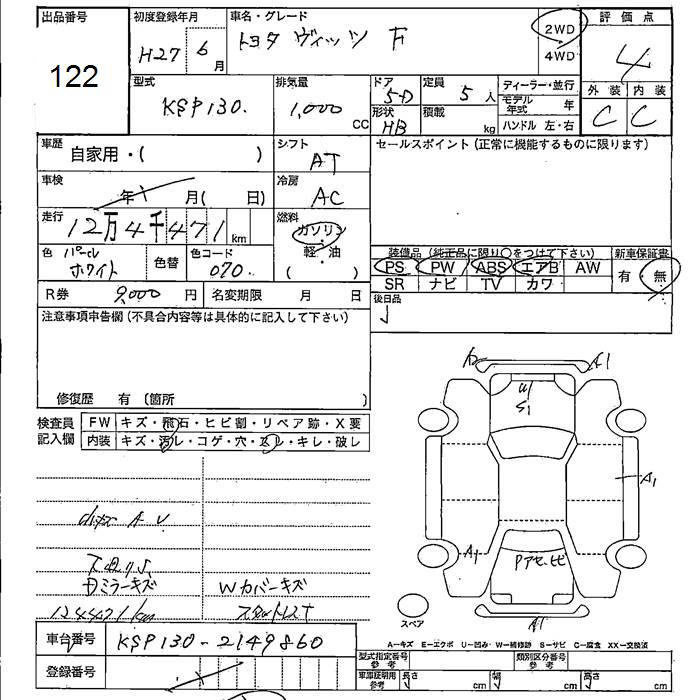 出品番号 初度登録年月 車名・グレード 評価点
122 H27 6月 トヨタ ヴィッツ F 2WD 4WD 4
型式 排気量 ドア 定員 ディーラー・並行 外装 内装
KSP130. 1,000 CC 5D 5人 モデル年式 年 C C
形状 HB 積載 kg ハンドル 左・右
車歴 自家用・( ) シフト AT セールスポイント (正常に機能するものに限ります)
車検 年 月( 日) 冷房 AC
走行 12万4千471km 燃料 ガソリン 軽・油 ( )
色 パール ホワイト 色替 色コード 070. 装備品 (純正品に限り○をつけて下さい) 新車保証書
PS PW ABS エアB AW 有 無
SR ナビ TV カワ
R券 9,000円 名変期限 月 日 後日品
注意事項申告欄 (不具合内容等は具体的に記入して下さい)
修復歴 有 (箇所 )
検査員記入欄 FW キズ・飛石・ヒビ割・リペア跡・X要
内装 キズ・汚ル・コゲ・穴・スレ・キレ・破レ
A1
U1
S1
A1
A1
Pアセ.ヒビ
A1
スペア
A V
Dミラーキズ Wカバーキズ
124471km スタットレスT
A=キズ E=エクボ U=凹み・W=補修跡 S=サビ C=腐食 XX=交換済
車台番号 KSP130-2149860
登録番号
型式指定番号 参考 類別区分番号 参考
車庫証明用 参考 長さ cm 幅 cm 高さ cm